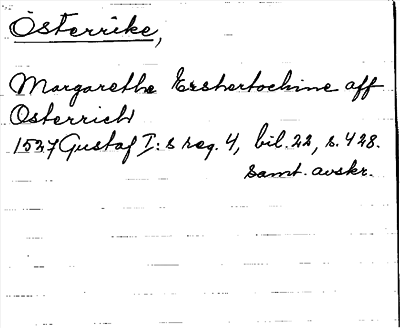 Österrike,
Margarethe Ershertochinne aff
Osterrich
1527 Gustaf I:s reg. 4, bil. 22, s. 428.
samt. avskr.